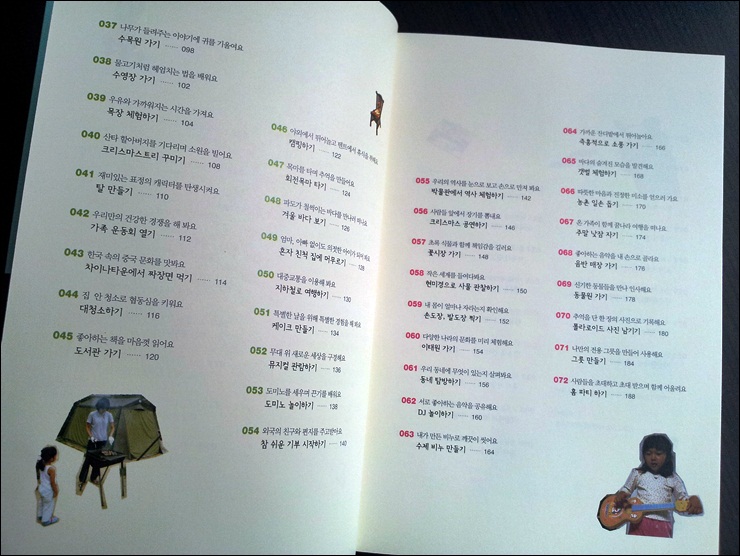 037 나무가 들려주는 이야기에 귀를 기울여요
수목원 가기 ······ 098
038 물고기처럼 헤엄치는 법을 배워요
수영장 가기 ······ 102
039 우유와 가까워지는 시간을 가져요
목장 체험하기 ······ 104
040 산타 할아버지를 기다리며 소원을 빌어요
크리스마스트리 꾸미기 ······ 108
041 재미있는 표정의 캐릭터를 탄생시켜요
탈 만들기 ······ 110
042 우리만의 건강한 경쟁을 해 봐요
가족 운동회 열기 ······ 112
043 한국 속의 중국 문화를 맛봐요
차이나타운에서 짜장면 먹기 ······ 114
044 집 안 청소로 협동심을 키워요
대청소하기 ······ 116
045 좋아하는 책을 마음껏 읽어요
도서관 가기 ······ 120
046 야외에서 뛰어놀고 텐트에서 휴식을 취해요
캠핑하기 ······ 122
047 목마를 타며 추억을 만들어요
회전목마 타기 ······ 124
048 파도가 철썩이는 바다를 만나러 떠나요
겨울 바다 보기 ······ 126
049 엄마, 아빠 없이도 의젓한 아이가 되어 봐요
혼자 친척 집에 머무르기 ······ 128
050 대중교통을 이용해 봐요
지하철로 여행하기 ······ 130
051 특별한 날을 위해 특별한 경험을 해 봐요
케이크 만들기 ······ 134
052 무대 위 새로운 세상을 구경해요
뮤지컬 관람하기 ······ 136
053 도미노를 세우며 끈기를 배워요
도미노 놀이하기 ······ 138
054 외국의 친구와 편지를 주고받아요
참 쉬운 기부 시작하기 ······ 140
055 우리의 역사를 눈으로 보고 손으로 만져 봐요
박물관에서 역사 체험하기 ······ 142
056 사람들 앞에서 장기를 뽐내요
크리스마스 공연하기 ······ 146
057 초록 식물과 함께 책임감을 길러요
꽃시장 가기 ······ 148
058 작은 세계를 들여다봐요
현미경으로 사물 관찰하기 ······ 150
059 내 몸이 얼마나 자라는지 확인해요
손도장, 발도장 찍기 ······ 152
060 다양한 나라의 문화를 미리 체험해요
이태원 가기 ······ 154
061 우리 동네에 무엇이 있는지 살펴봐요
동네 탐방하기 ······ 156
062 서로 좋아하는 음악을 공유해요
DJ 놀이하기 ······ 160
063 내가 만든 비누로 깨끗이 씻어요
수제 비누 만들기 ······ 164
064 가까운 잔디밭에서 뛰어놀아요
즉흥적으로 소풍 가기 ······ 166
065 바다의 숨겨진 모습을 발견해요
갯벌 체험하기 ······ 168
066 따뜻한 마음과 진정한 미소를 얻으러 가요
농촌 일손 돕기 ······ 170
067 온 가족이 함께 끝나라 여행을 떠나요
주말 낮잠 자기 ······ 174
068 좋아하는 음악을 내 손으로 골라요
음반 매장 가기 ······ 176
069 신기한 동물들을 만나 인사해요
동물원 가기 ······ 178
070 추억을 단 한 장의 사진으로 기록해요
폴라로이드 사진 남기기 ······ 180
071 나만의 전용 그릇을 만들어 사용해요
그릇 만들기 ······ 184
072 사람들을 초대하고 초대 받으며 함께 어울려요
홈 파티 하기 ······ 188